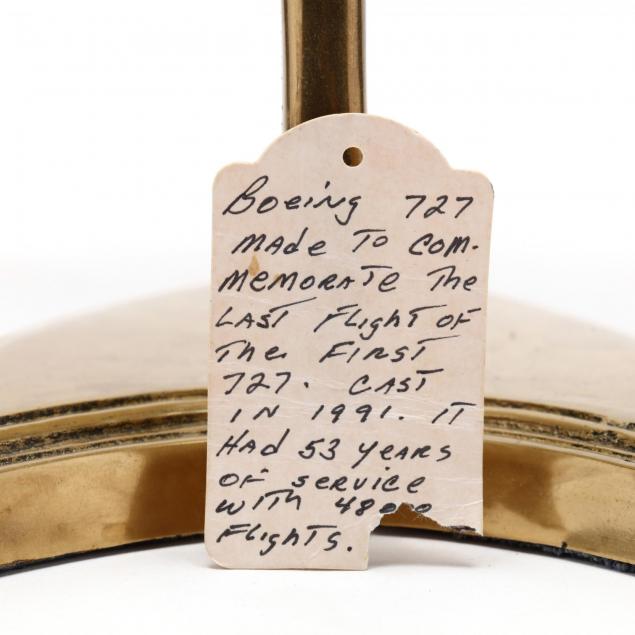 Boeing 727
MADE TO COM-
MEMORATE The
LAST Flight OF
The FIRST
727. CAST
IN 1991. IT
HAD 53 YEARS
OF SERVICE
WITH 48000
Flights.